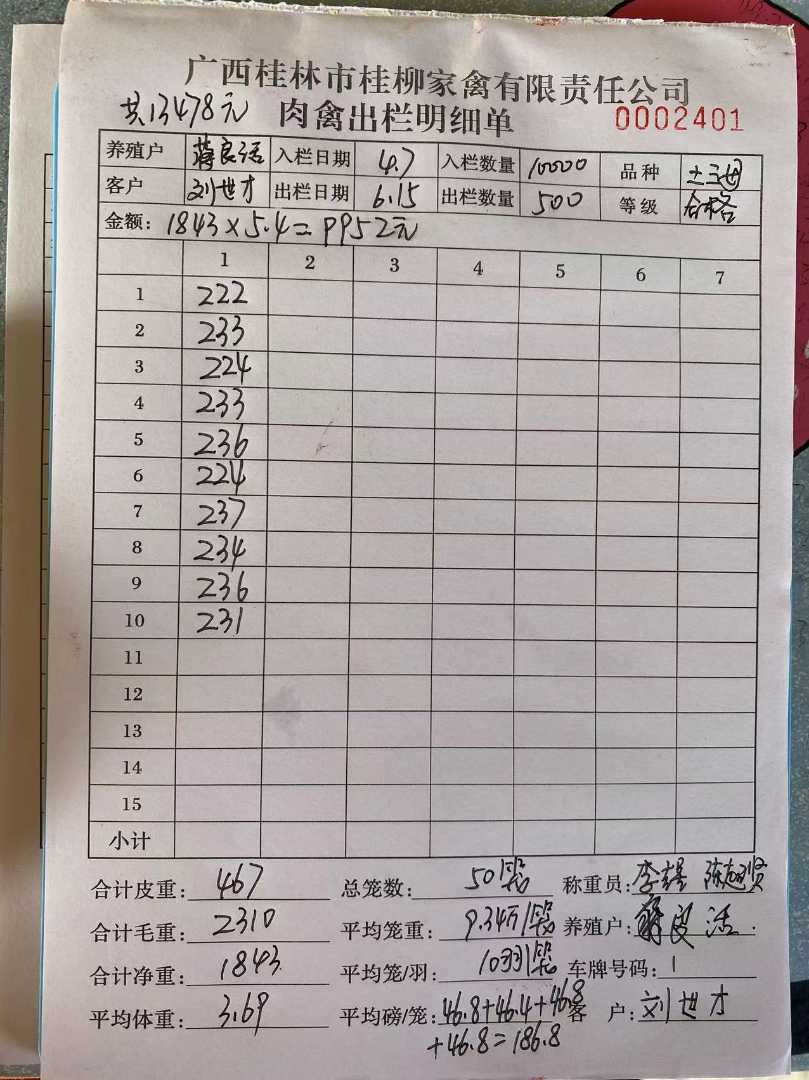 广西桂林市桂柳家禽有限责任公司
共13478元
肉禽出栏明细单
0002401
养殖户 蒋良活 入栏日期 4.7 入栏数量 10000 品种
客户 刘世才 出栏日期 6.15 出栏数量 500 等级 合格
金额: 1843×5.4=9952元
1 2 3 4 5 6 7
1 222
2 233
3 224
4 233
5 236
6 224
7 237
8 234
9 236
10 231
11
12
13
14
15
小计
合计皮重: 467 总笼数: 50笼 称重员:
合计毛重: 2310 平均笼重: 9.34斤/笼 养殖户: 蒋良活
合计净重: 1843 平均笼/羽: 10羽/笼 车牌号码: 1
平均体重: 3.69 平均磅/笼: 46.8+46.4+46.8 客户: 刘世才
+46.8=186.8